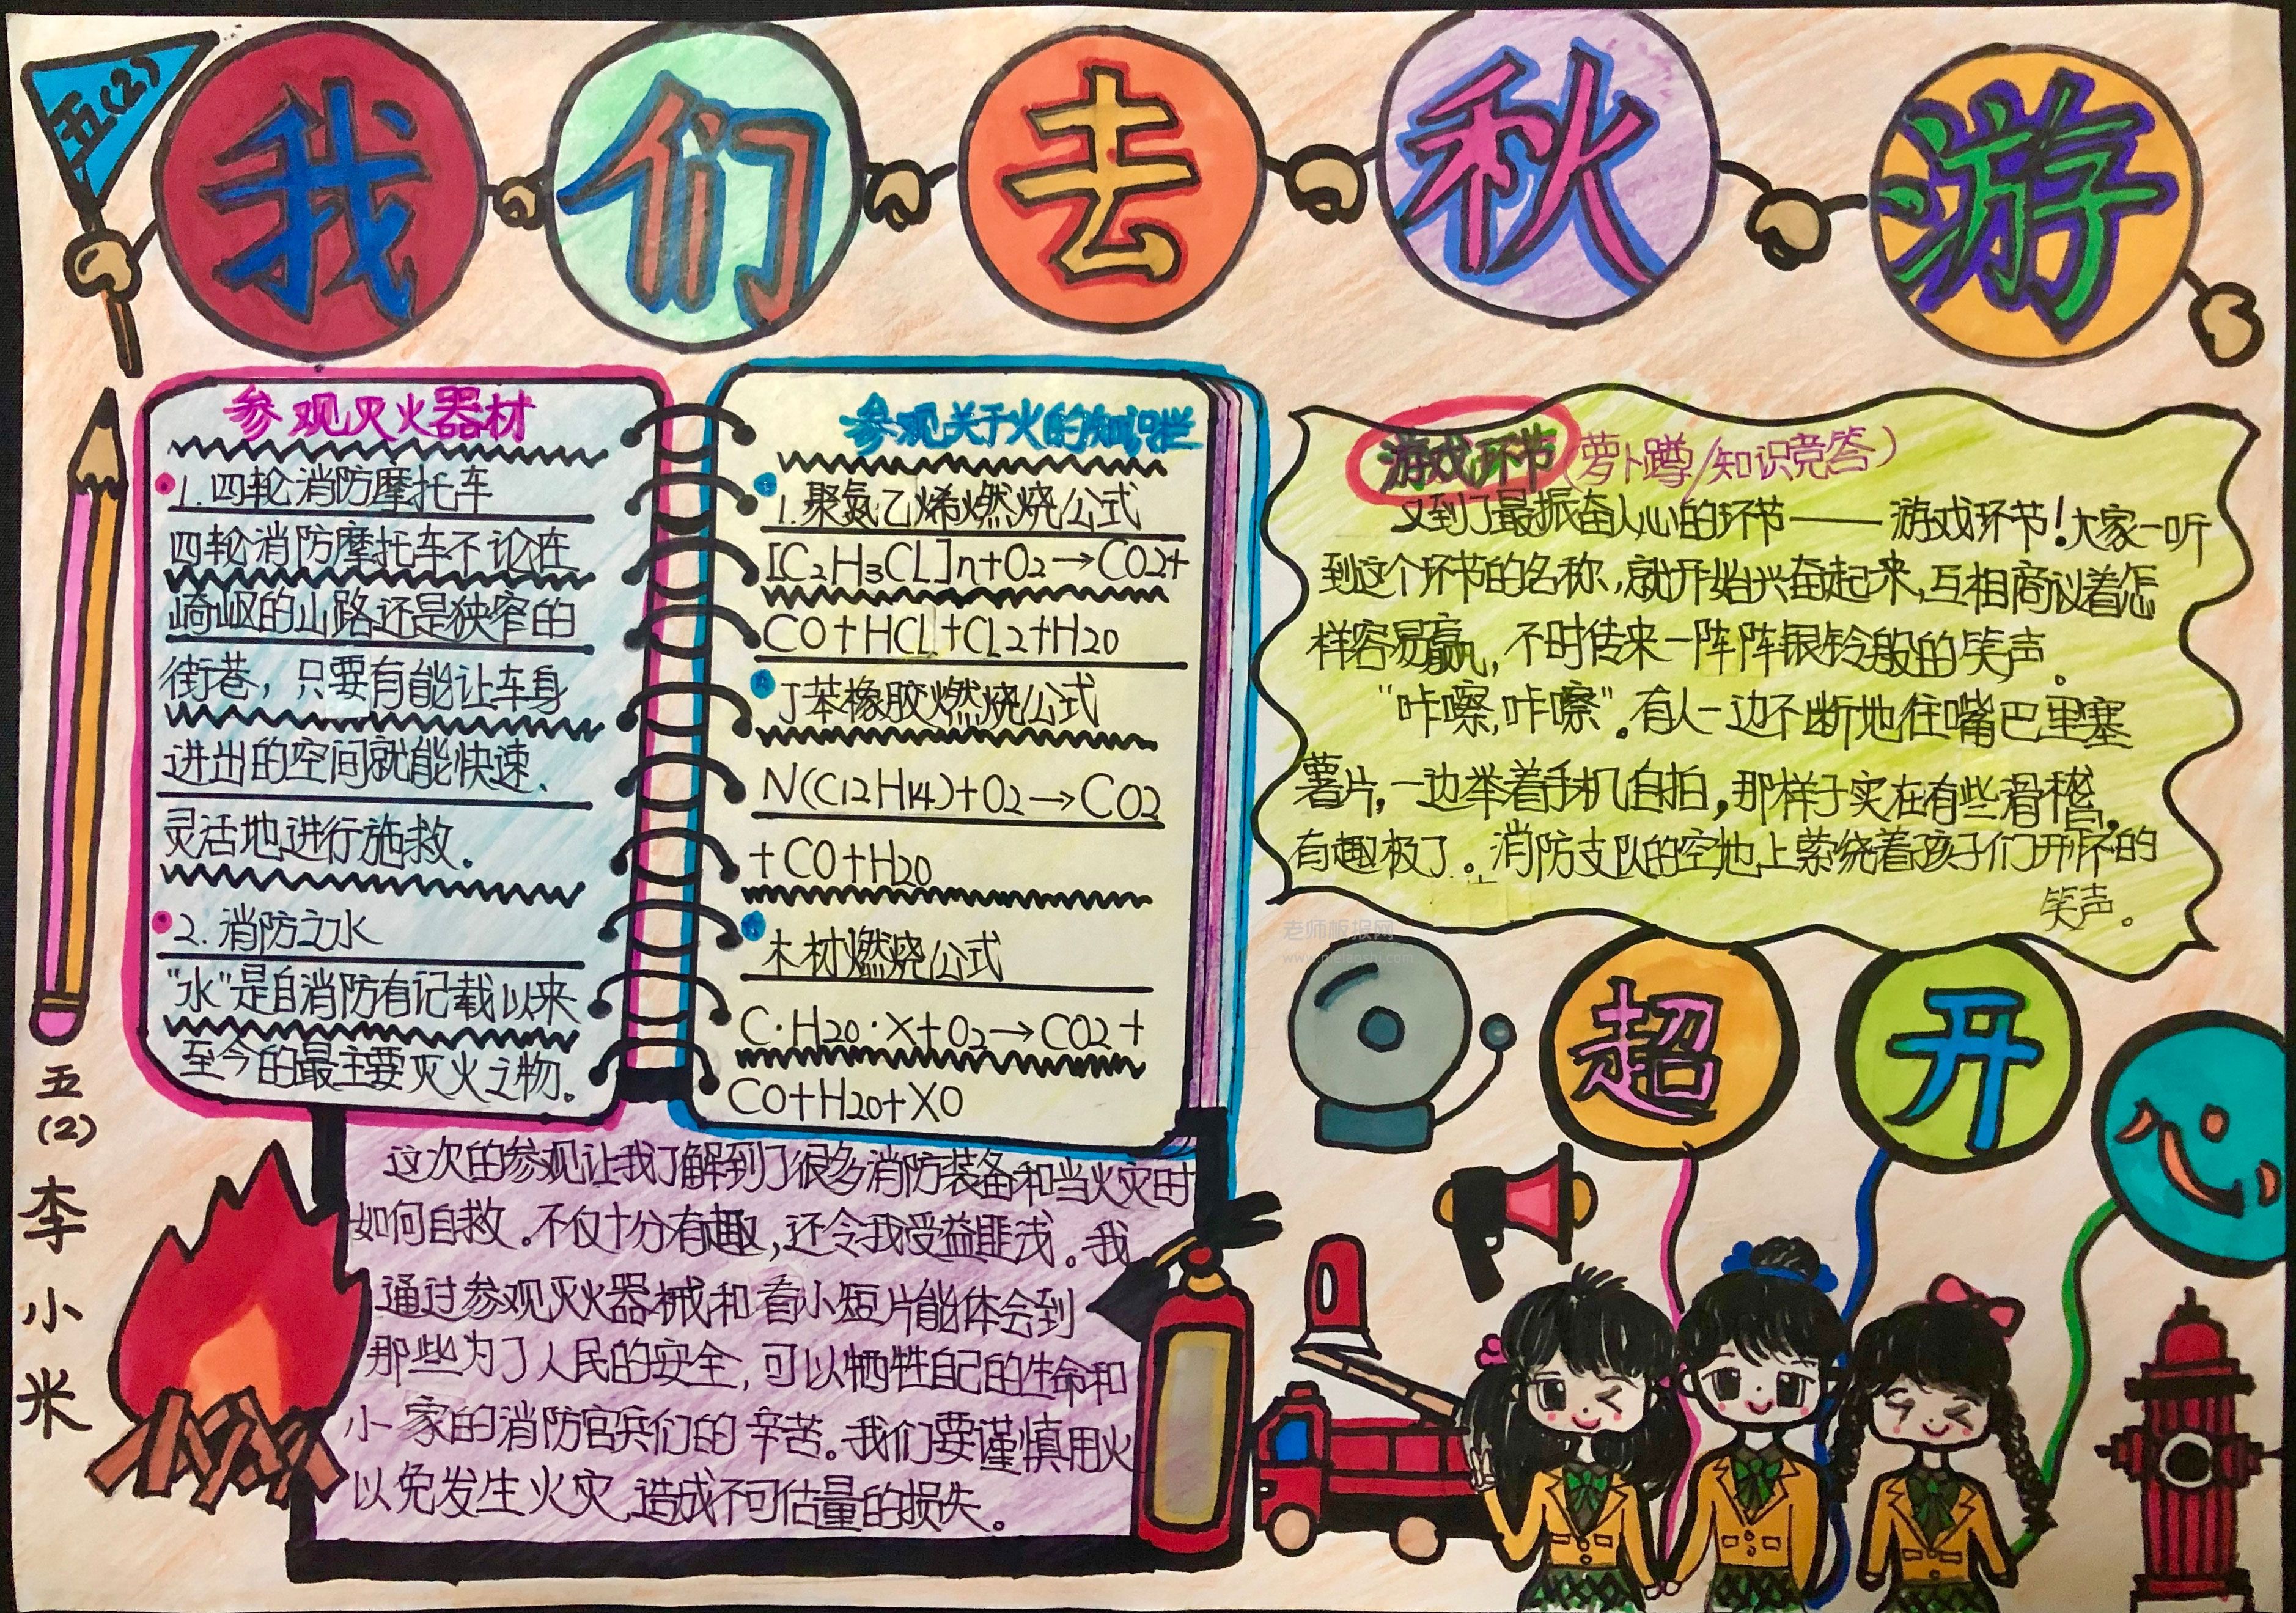 五(2)
我们去秋游
参观灭火器材
1.四轮消防摩托车
四轮消防摩托车不论在
崎岖的山路还是狭窄的
街巷，只要有能让车身
进出的空间就能快速、
灵活地进行施救。
2.消防之水
“水”是自消防有记载以来
至今的最主要灭火之物。
参观关于火的知识栏
1.聚氯乙烯燃烧公式
[C2H3CL]n+O2→CO2+
CO+HCL+CL2+H2O
丁苯橡胶燃烧公式
N(C12H14)+O2→CO2
+CO+H2O
木材燃烧公式
C·H2O·X+O2→CO2+
CO+H2O+XO
游戏环节(萝卜蹲/知识竞答)
又到了最振奋人心的环节——游戏环节！大家一听
到这个环节的名称，就开始兴奋起来，互相商议着怎
样容易赢，不时传来一阵阵银铃般的笑声。
“咔嚓，咔嚓”。有人一边不断地往嘴巴里塞
薯片，一边举着手机自拍，那样子实在有些滑稽，
有趣极了。消防支队的空地上萦绕着孩子们开怀的
笑声。
老师板报网
超开心
五
(2)
李
小
米
这次的参观让我了解到了很多消防装备和当火灾时
如何自救。不仅十分有趣，还令我受益匪浅。我
通过参观灭火器械和看小短片能体会到
那些为了人民的安全，可以牺牲自己的生命和
小家的消防官兵们的辛苦。我们要谨慎用火
以免发生火灾，造成不可估量的损失。